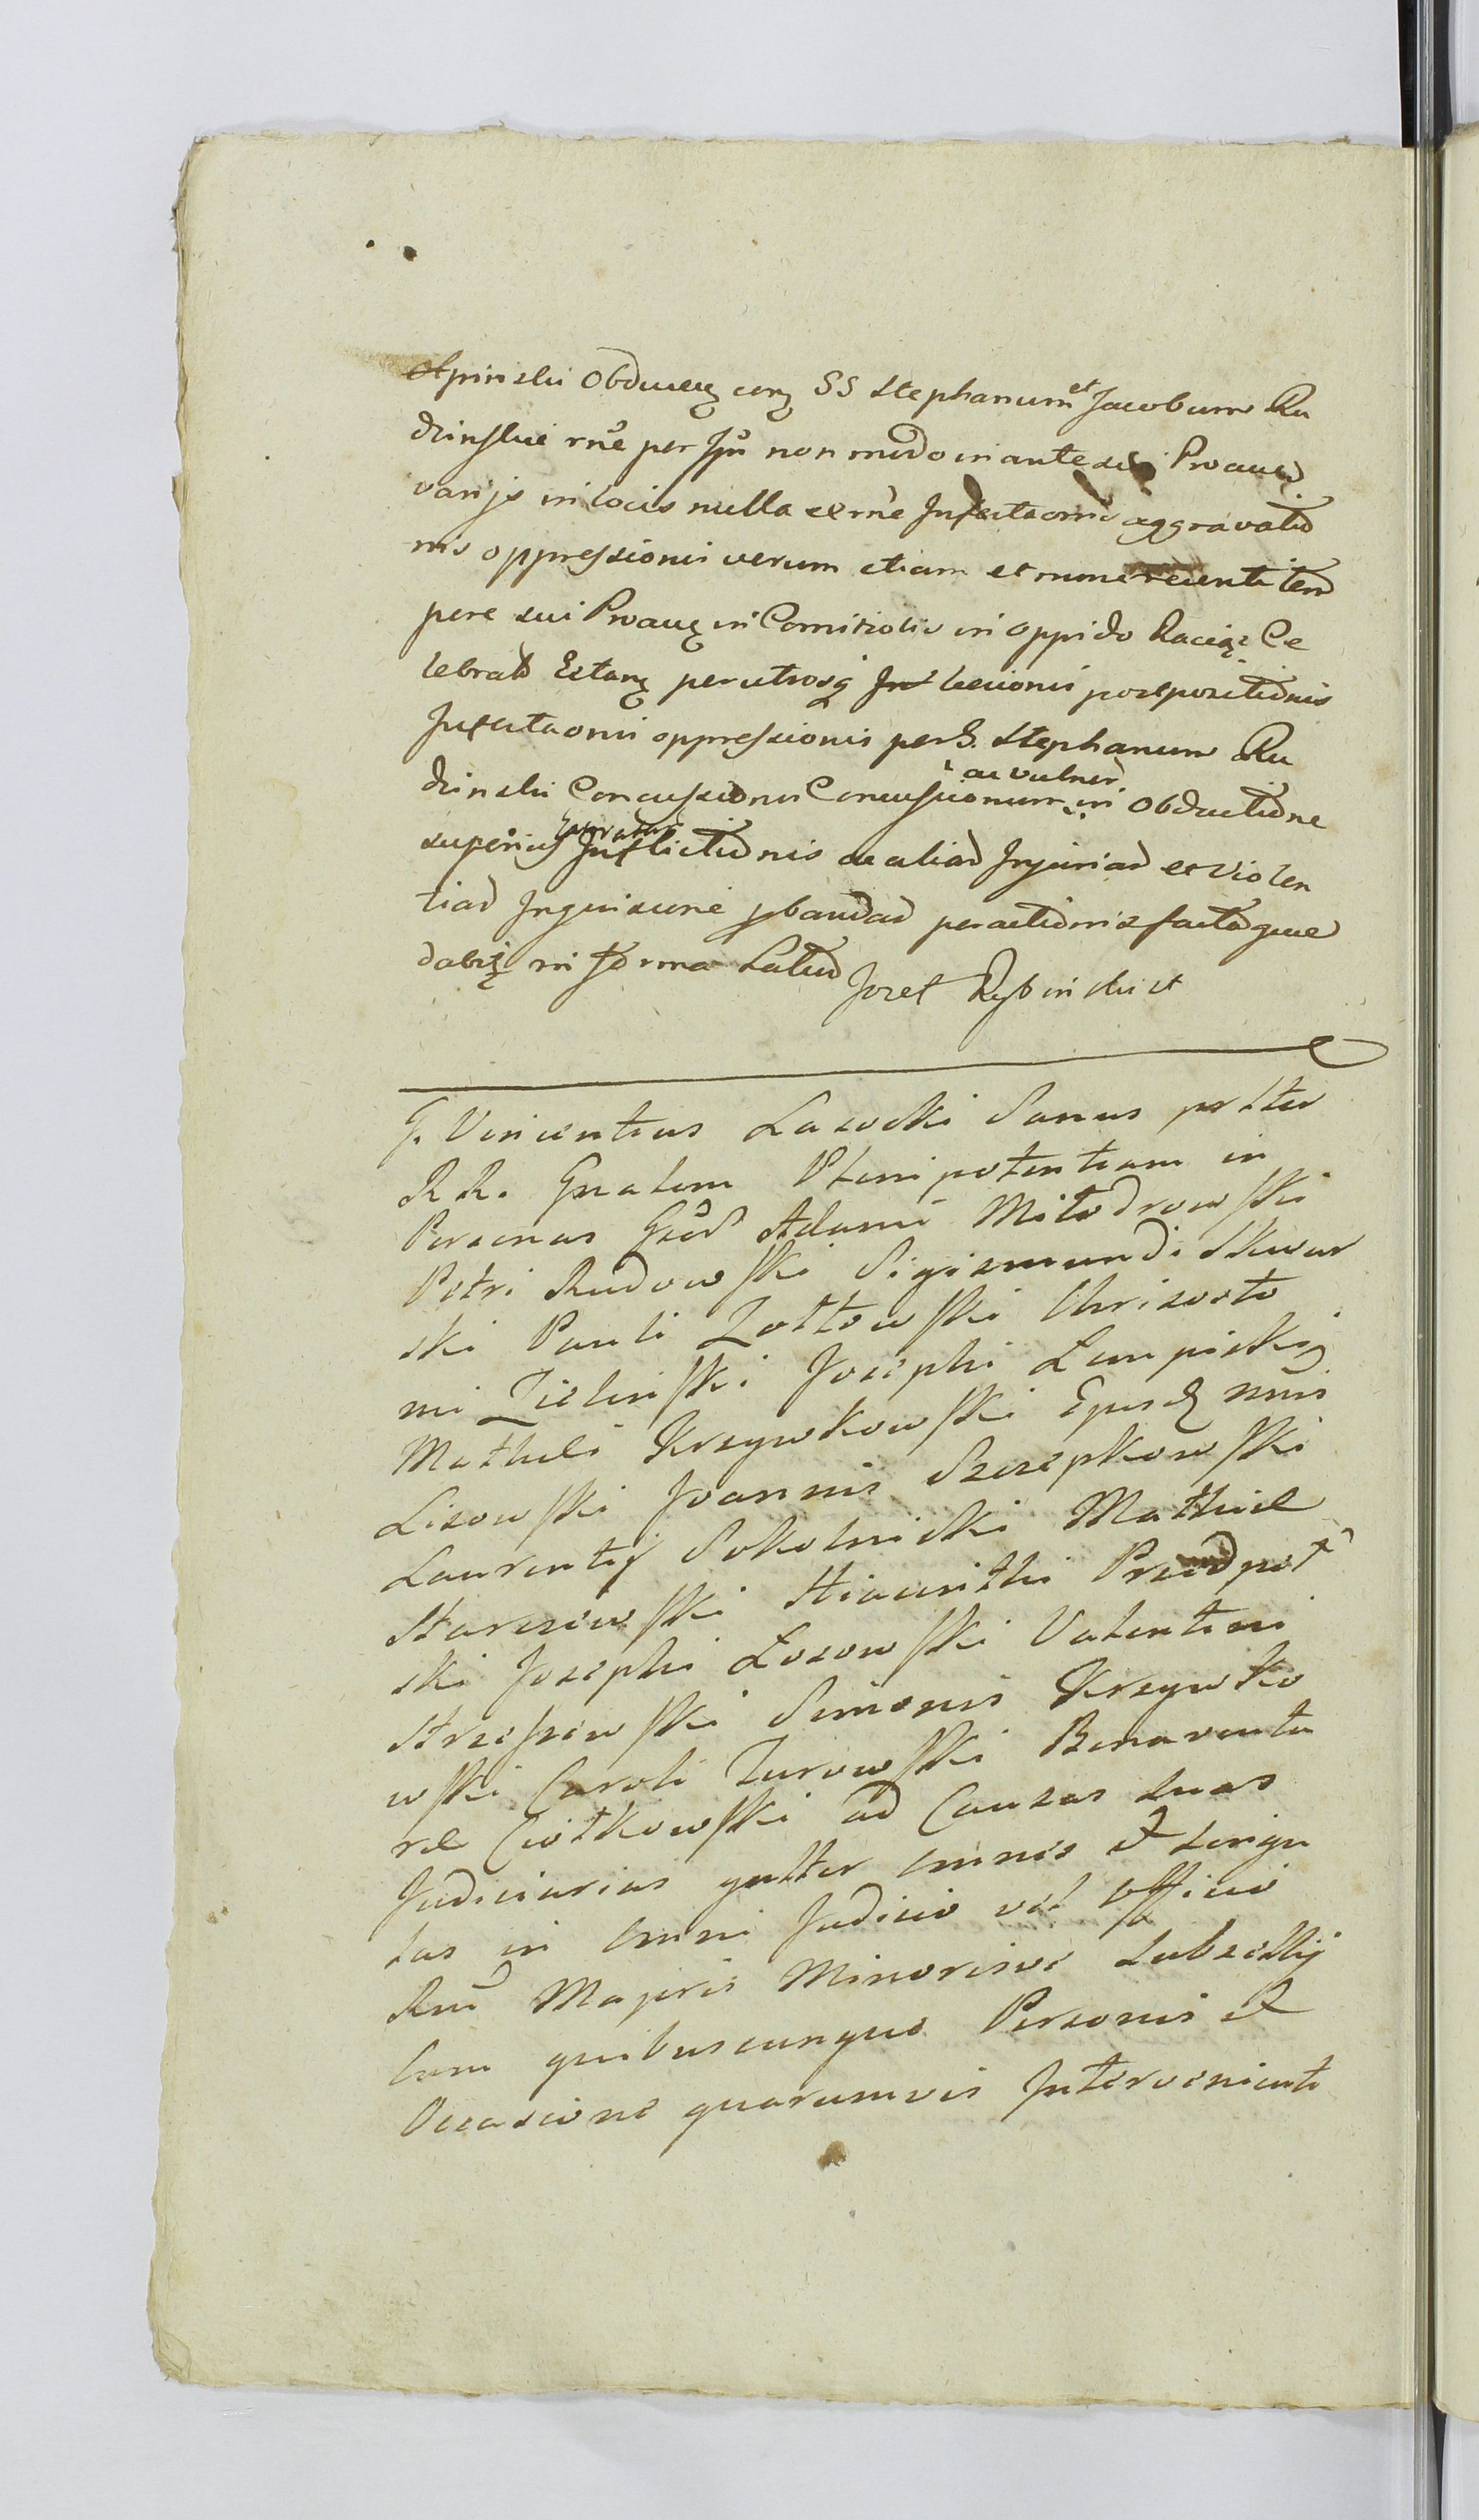 Alpinski Obducen cong SS Stephanum et Jacobum Ru
dzinskie rñe per Ipm non modo in ante sui Proaues
varijs in locis nulla ex rñe Infectaonis aggravatio
nis oppressionis verum etiam et nunc recenti tem
pere sui Proaug in Comitiolis in oppido Raciąz Ce
lebratis per utrosq lecionis postpositionis
Insectaonis oppressionis per S. Stephanum Ru
dzinski Concussionis Concussionum ac vulner in obductione
superius Inflictionis ac alias Injurias et Violen
tias Inquisicione pbandas peractionis facto que
dabit in forma Latius Jozef Rybinski st
G. Vincentius Lasocki Sanus prstter
R R. Gnalem Plenipotentiam in
Personas Gsor Adami Milodrowski
Petri Rudowski Sigismundi Skwar
ski Pauli Zottowski Chrisosto
mi Zielinski Josephi Lempicki
Mathei Krzywkowski Ejusd nnis
Lisowski Joannis Szczepkowski
Laurentij Sokolnicki Mathie
Starczewski Hiacinthi Przedpeł
ski Josephi Losowski Valentini
Strzeszewski Simonis Krzywko
wski Caroli Zurowski Bonaventu
re Ciołkowski ad Causas suas
Judiciarias gnltter omnes et singu
las in omni Judicio vel officio
Rni Majoris Minorisve Subsellij
Cum quibuscunque Personis et
Occasione quarumvis Intervenienti